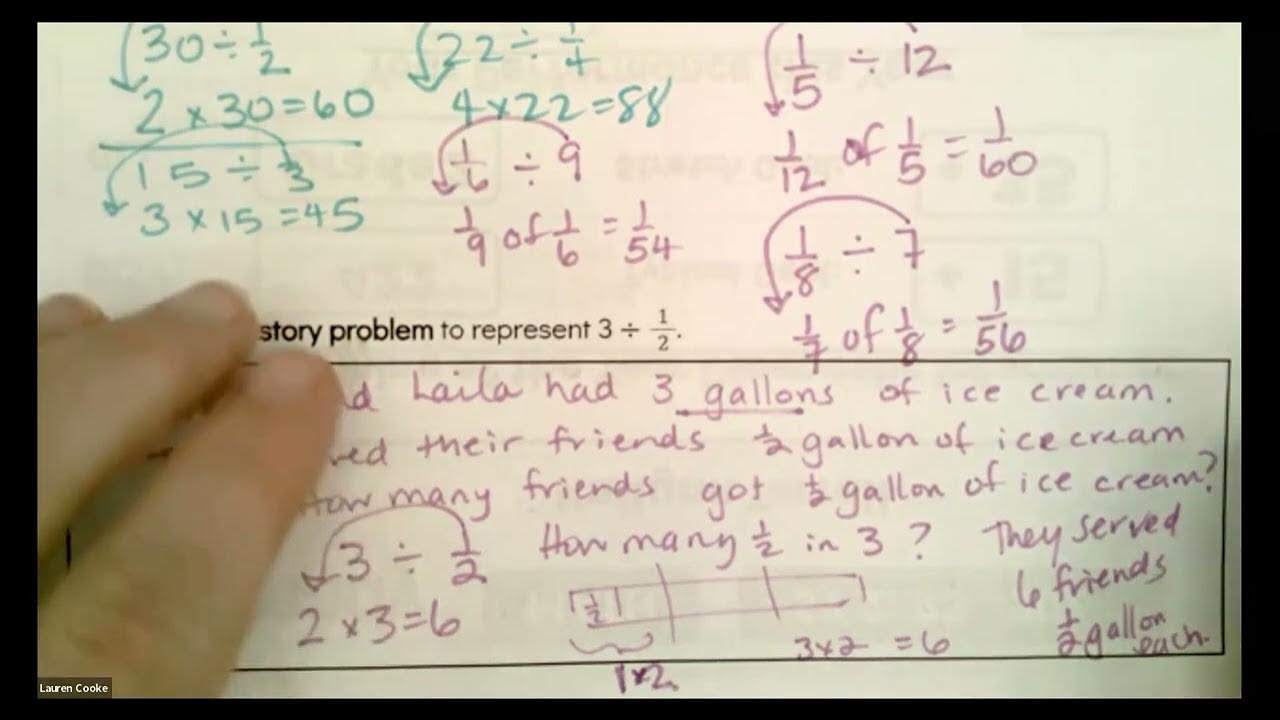 30 ÷ 1/2
2 x 30 = 60
15 ÷ 1/3
3 x 15 = 45
22 ÷ 1/4
4 x 22 = 88
1/6 ÷ 9
1/9 of 1/6 = 1/54
1/5 ÷ 12
1/12 of 1/5 = 1/60
1/8 ÷ 7
1/7 of 1/8 = 1/56
story problem to represent 3 ÷ 1/2.
Laila had 3 gallons of ice cream.
their friends 1/2 gallon of ice cream
How many friends got 1/2 gallon of ice cream?
3 ÷ 1/2
2 x 3 = 6
How many 1/2 in 3?
1/2
1x2
3x2 = 6
They served
6 friends
1/2 gallon
each.
Lauren Cooke